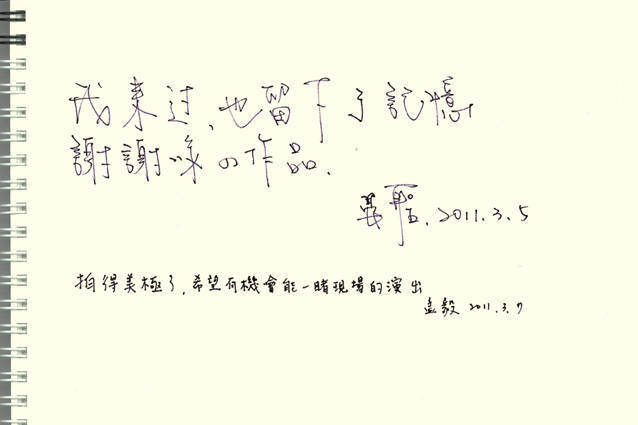 我来过,也留下了記憶
謝謝咪の作品.
聖. 2011.3.5
拍得美極了,希望有機會能一睹現場的演出
孟毅 2011.3.7